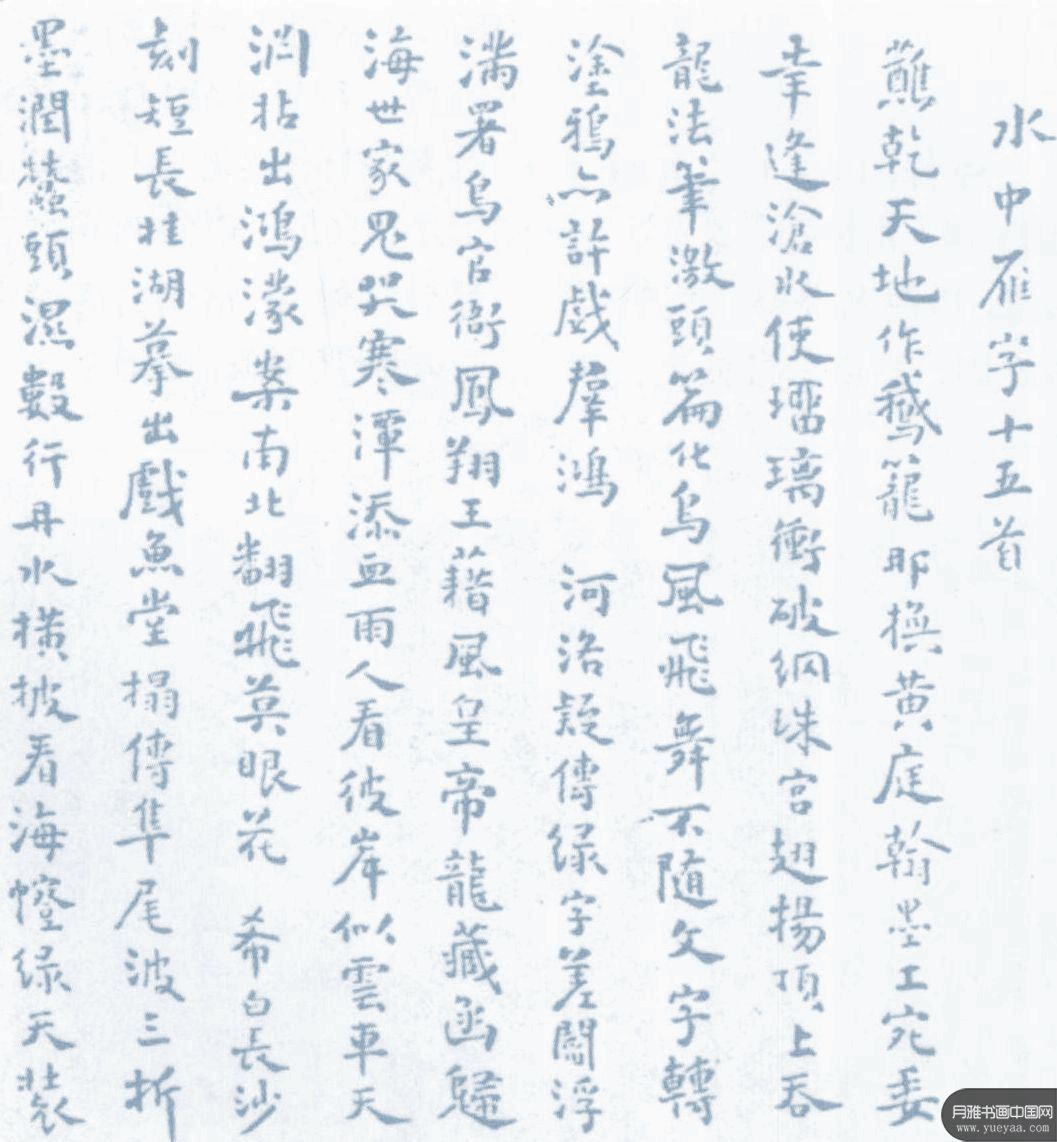 水中雁字十五首
蘸乾天地作鵞籠耶換黄庭翰墨工宛委
幸逢滄水使瑠璃衝破網珠宮翅揚頂上吞
龍法筆激頭篇化烏風飛舞不隨文字轉
塗鴉亦許戲羣鴻 河洛疑傳緑字差闘浮
滿署烏官衙鳳翔王藉風皇帝龍藏函歸
海世家鬼哭寒潭添血雨人看彼岸似雲車天
淵拈出鴻濛案南北翻飛莫眼花 希白長沙
刻短長挂湖摹出戲魚堂搨傳隼尾波三折
墨潤蠶頭濕數行丹水橫披看海幢緑天裝
月雅书画中国网
www.yueyaa.com